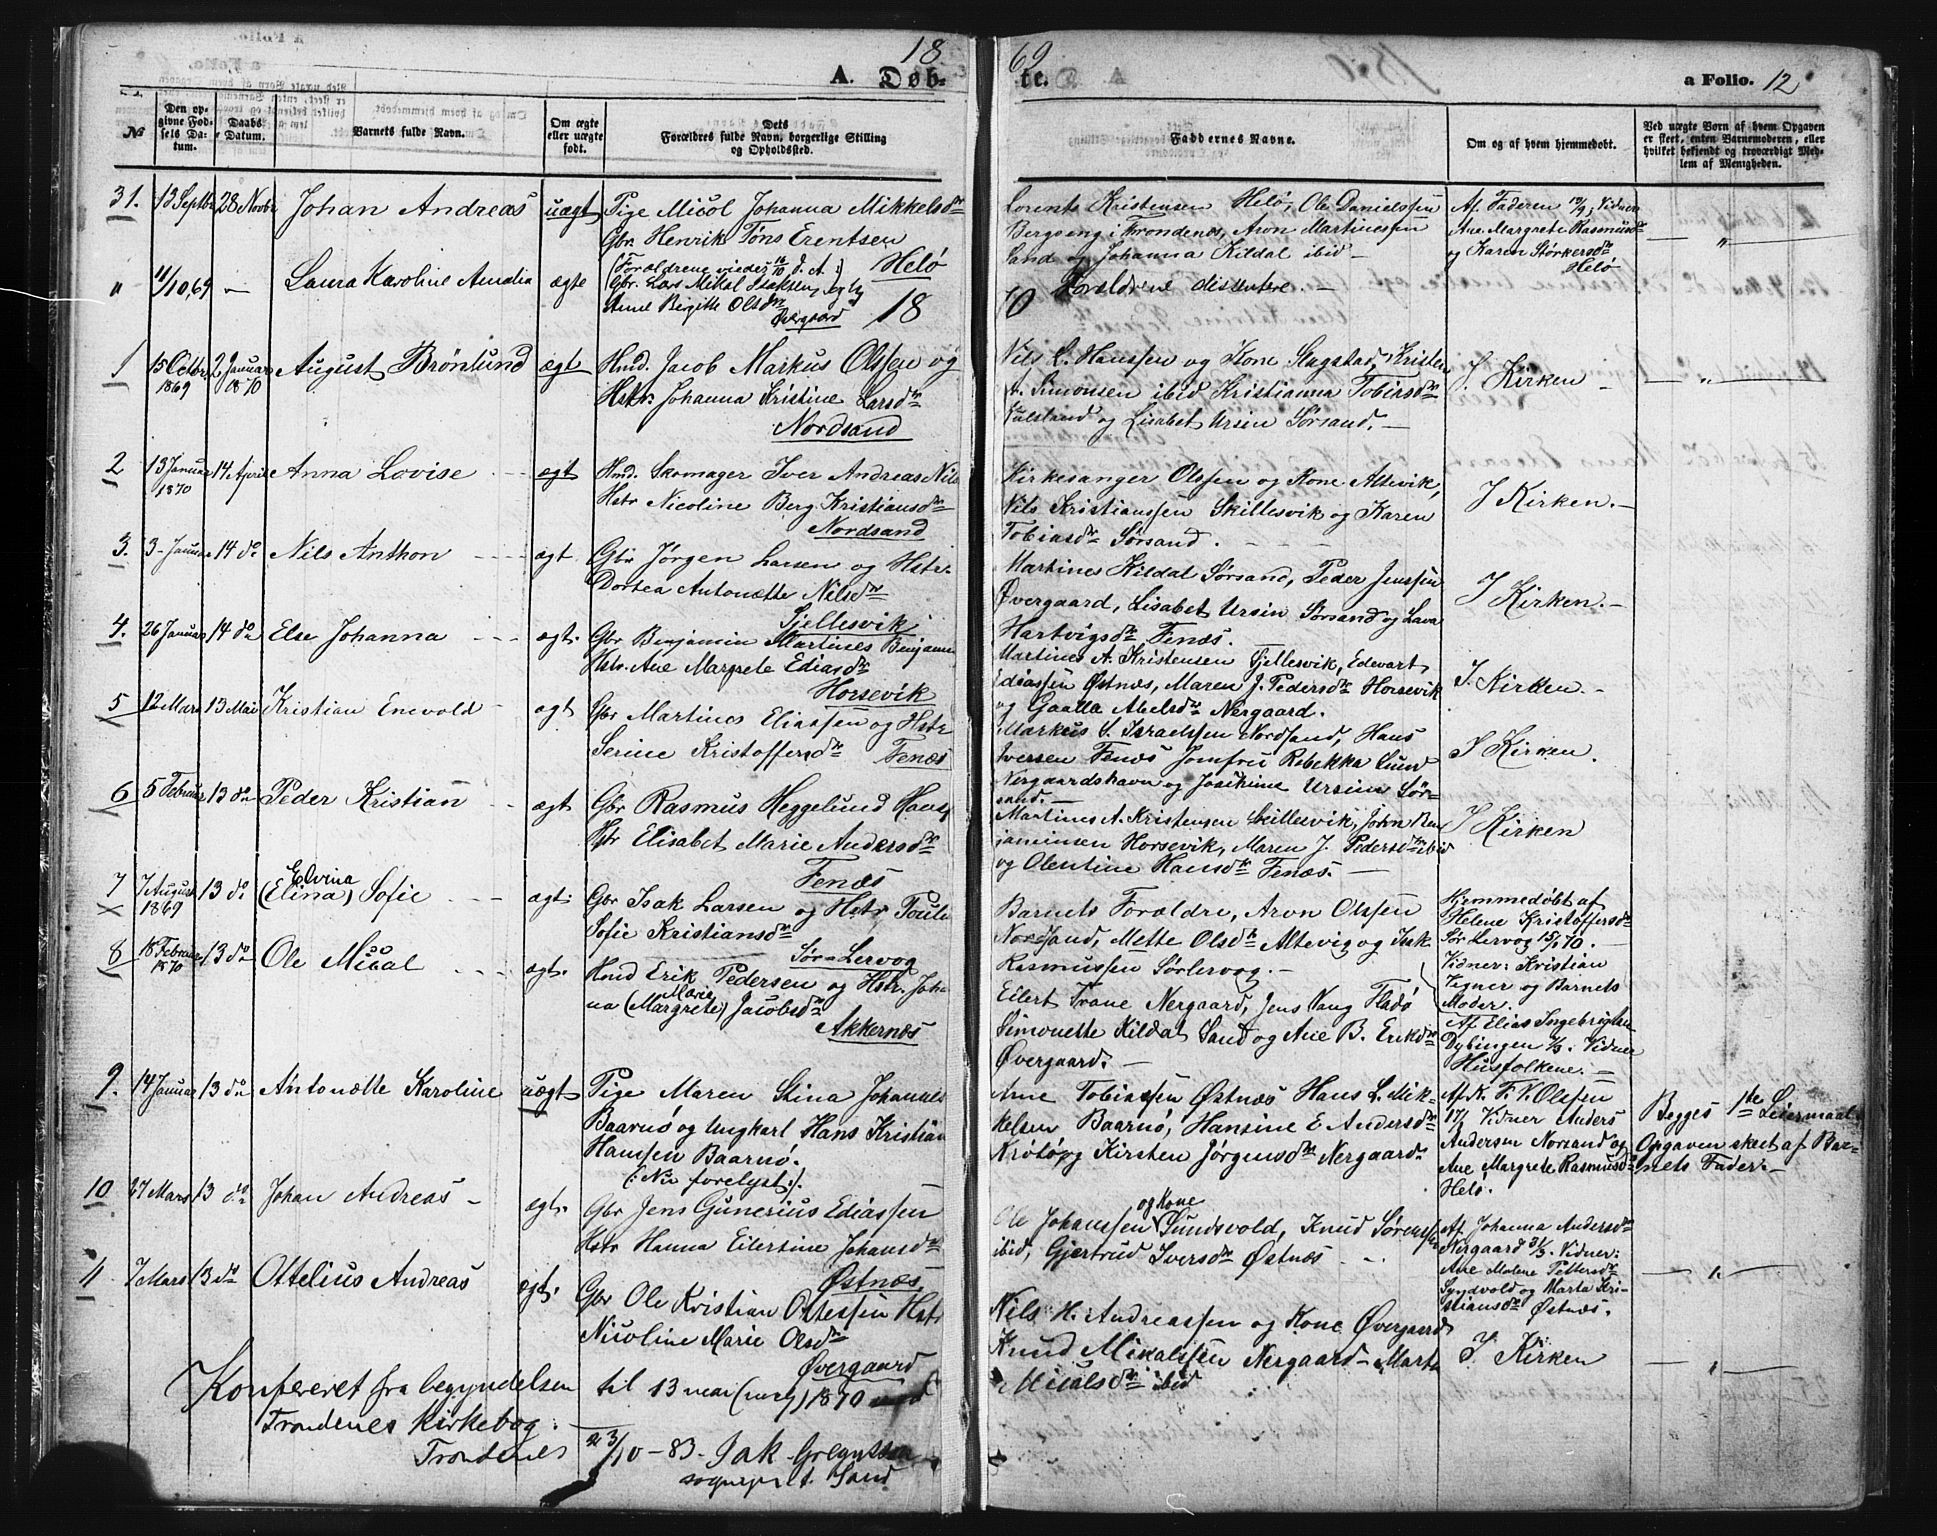 18 69
A. Døb- te. a Folio. 12
№
Den opgivne Fødsels Datum.
Daabs Datum.
Barnets fulde Navn.
Om ægte eller uægte født.
Dets Forældres fulde Navn, borgerlige Stilling og Opholdssted.
Faddernes Navne.
Om og af hvem hjemmedøbt.
Ved uægte Børn af hvem Opgaven er skeet, enten Barnemoderen, eller hvilket bekjendt og troværdigt Medlem af Menigheden.
31. 13 Septbr 28 Novbr Johan Andreas uægt Pige Micol Johanna Mikkelsdr
Gbr. Henrik Tøns Erentsen
Helø
Lorents Kristensen Helø, Ole Danielssen
Bergseng i Trondenes, Aron Martinussen
Sand og Johanna Kildal ibid —
Af Faderen 19/9, Vidner
Ane Margrete Rasmusdr
og Karen Størkersdr
Helø
— " —
" 11/10,69 — Laura Karoline Amalia ægte
Gbr. Lars Mikal Isaksen og
Anne Birgitte Olsdr
Øvergaard
Forældrene dissentere —
18 70
1 15 Octbr 1869 2 Januar 1870 August Brønlund ægt Hmd. Jacob Markus Olssen og
Hstr. Johanna Kristine Larsdr
Nordsand
Nils L. Hanssen og Kone Slagstad, Kristen
Simonsen ibid Kristianna Tobiasdr
Kulstand og Lisabet Ursin Sørsand. —
I Kirken —
— " —
2 13 Januar 1870 14 April Anna Lovise — ægt Hmd. Skomager Iver Andreas Nils
Hstr Nicoline Berg Kristiansdr
Nordsand
Kirkesanger Olssen og Kone Altevik,
Nils Kristianssen Skillesvik og Karen
Tobiasdr Sørsand.
I Kirken. —
3. 3 Januar 14 do Nils Anthon — ægt Gbr Jørgen Larsen og Hstr.
Dortea Antonætte Nilsdr
Sjellesvik
Martines Kildal Sørsand, Peder Jenssen
Øvergaard, Lisabet Ursin Sørsand og Lava
Hartvigsdr Fenæs.
I Kirken. —
4. 26 Januar 14 do Else Johanna — ægt. Gbr Benjamin Martines Benjamin
Hstr. Ane Margrete Ediasdr
Horsevik
Martines A. Kristensen Sjellesvik, Edevart
Ediassen Østnæs, Maren J. Pedersdr Horsevik
og Gaalla Abelsdr Nergaard.
I. Kirken. —
5 12 Mars 13 Mai Kristian Enevold — ægt Gbr Martines Eliassen og Hstr
Serine Kristoffersdr Fenæs
Markus S. Israelssen Nordsand, Hans
Iversen Fenæs Jomfru Rebekka Lund
Nergaardshavn og Josefine Ursin Sør-
sand. —
I Kirken.
6 5 Februar 13 do Peder Kristian — ægt Gbr Rasmus Heggelund Hans
Hstr Elisabet Marie Andersdr
Fenæs
Martines A. Kristensen Skillesvik, John Ben
jaminsen Horsevik, Maren J. Pedersdr ibid
og Olentine Hansdr Fenæs. —
I Kirken
7 7 August 1869 13 do Elvina
(Elina) Sofie — ægt: Gbr Isak Larsen og Hstr
Sofie Kristiansdr
Sør-Lervog
Barnets Forældre, Aron Olssen
Nordsand, Mette Olsdr Altevig og Isak
Rasmussen Sørlervog. —
Hjemmedøbt af
Helene Kristoffersdr
Sør Lervog 15/1 70. —
Vidner: Kristian
Vigner og Barnets
Moder.
8 18 Februar 1870 13 do Ole Mical — ægt. Hmd Erik Pedersen og Hstr. Joha
na (Margrete) Marie Jacobsdr
Akkernæs
Eilert Trane Nergaard, Jens Vang Fladø
Simonette Kildal Sand og Ane B. Eriksdr
Øvergaard. —
Af Elias Ingebrigtsen
Dybingen 1/3. Vidner
Husfolkene. —
9. 14 Januar 13 do Antonætte Karoline uægt Pige Maren Stina Johanne
Baarnø og Ungkarl Hans Kristian
Hanssen Baarnø.
(: Nu forelyst :).
Arne Tobiassen Østnæs Hans L. Mik-
kelsen Baarnø, Hansine E Andersdr
Krøtø og Kirsten Jørgensdr Nergaard.
Af Kr. F. V. Olssen
17/1 Vidner Anders
Andersen Norsand og
Ane Margrete Rasmusdr
Helø.
Begges 1ste Leiermaal
Opgaven skeet af Bar-
nets Fader. —
10 27 Mars 13 do Johan Andreas — ægt. Gbr Jens Gunerius Ediassen
Hstr Hanna Eilertine Johansdr
Østnæs
Ole Johanssen og Kone Sundsvold, Knud Sørenssen
ibid, Gjertrud Iversdr Østnæs —
Af Johanna Andersdr
Nergaard 31/3. Vidner:
Ane Malene Pettersdr
Syndvold og Marta Kri-
stiansdr Østnæs.
— " —
11 7 Mars 13 do Ottelius Andreas ægt. Gbr Ole Kristian Ottessen Hstr
Nicoline Marie Olsdr
Øvergaard
Nils H. Andreassen og Kone Øvergaard
Knud Mikalssen Nergaard — Marta
Micalsdr ibid
I. Kirken
— " —
Konfereret fra begyndelsen til 13 mai (incl) 1870 med
Trondenes Kirkebog.
Trondenes 23/10 - 83.
sogneprest. Sand